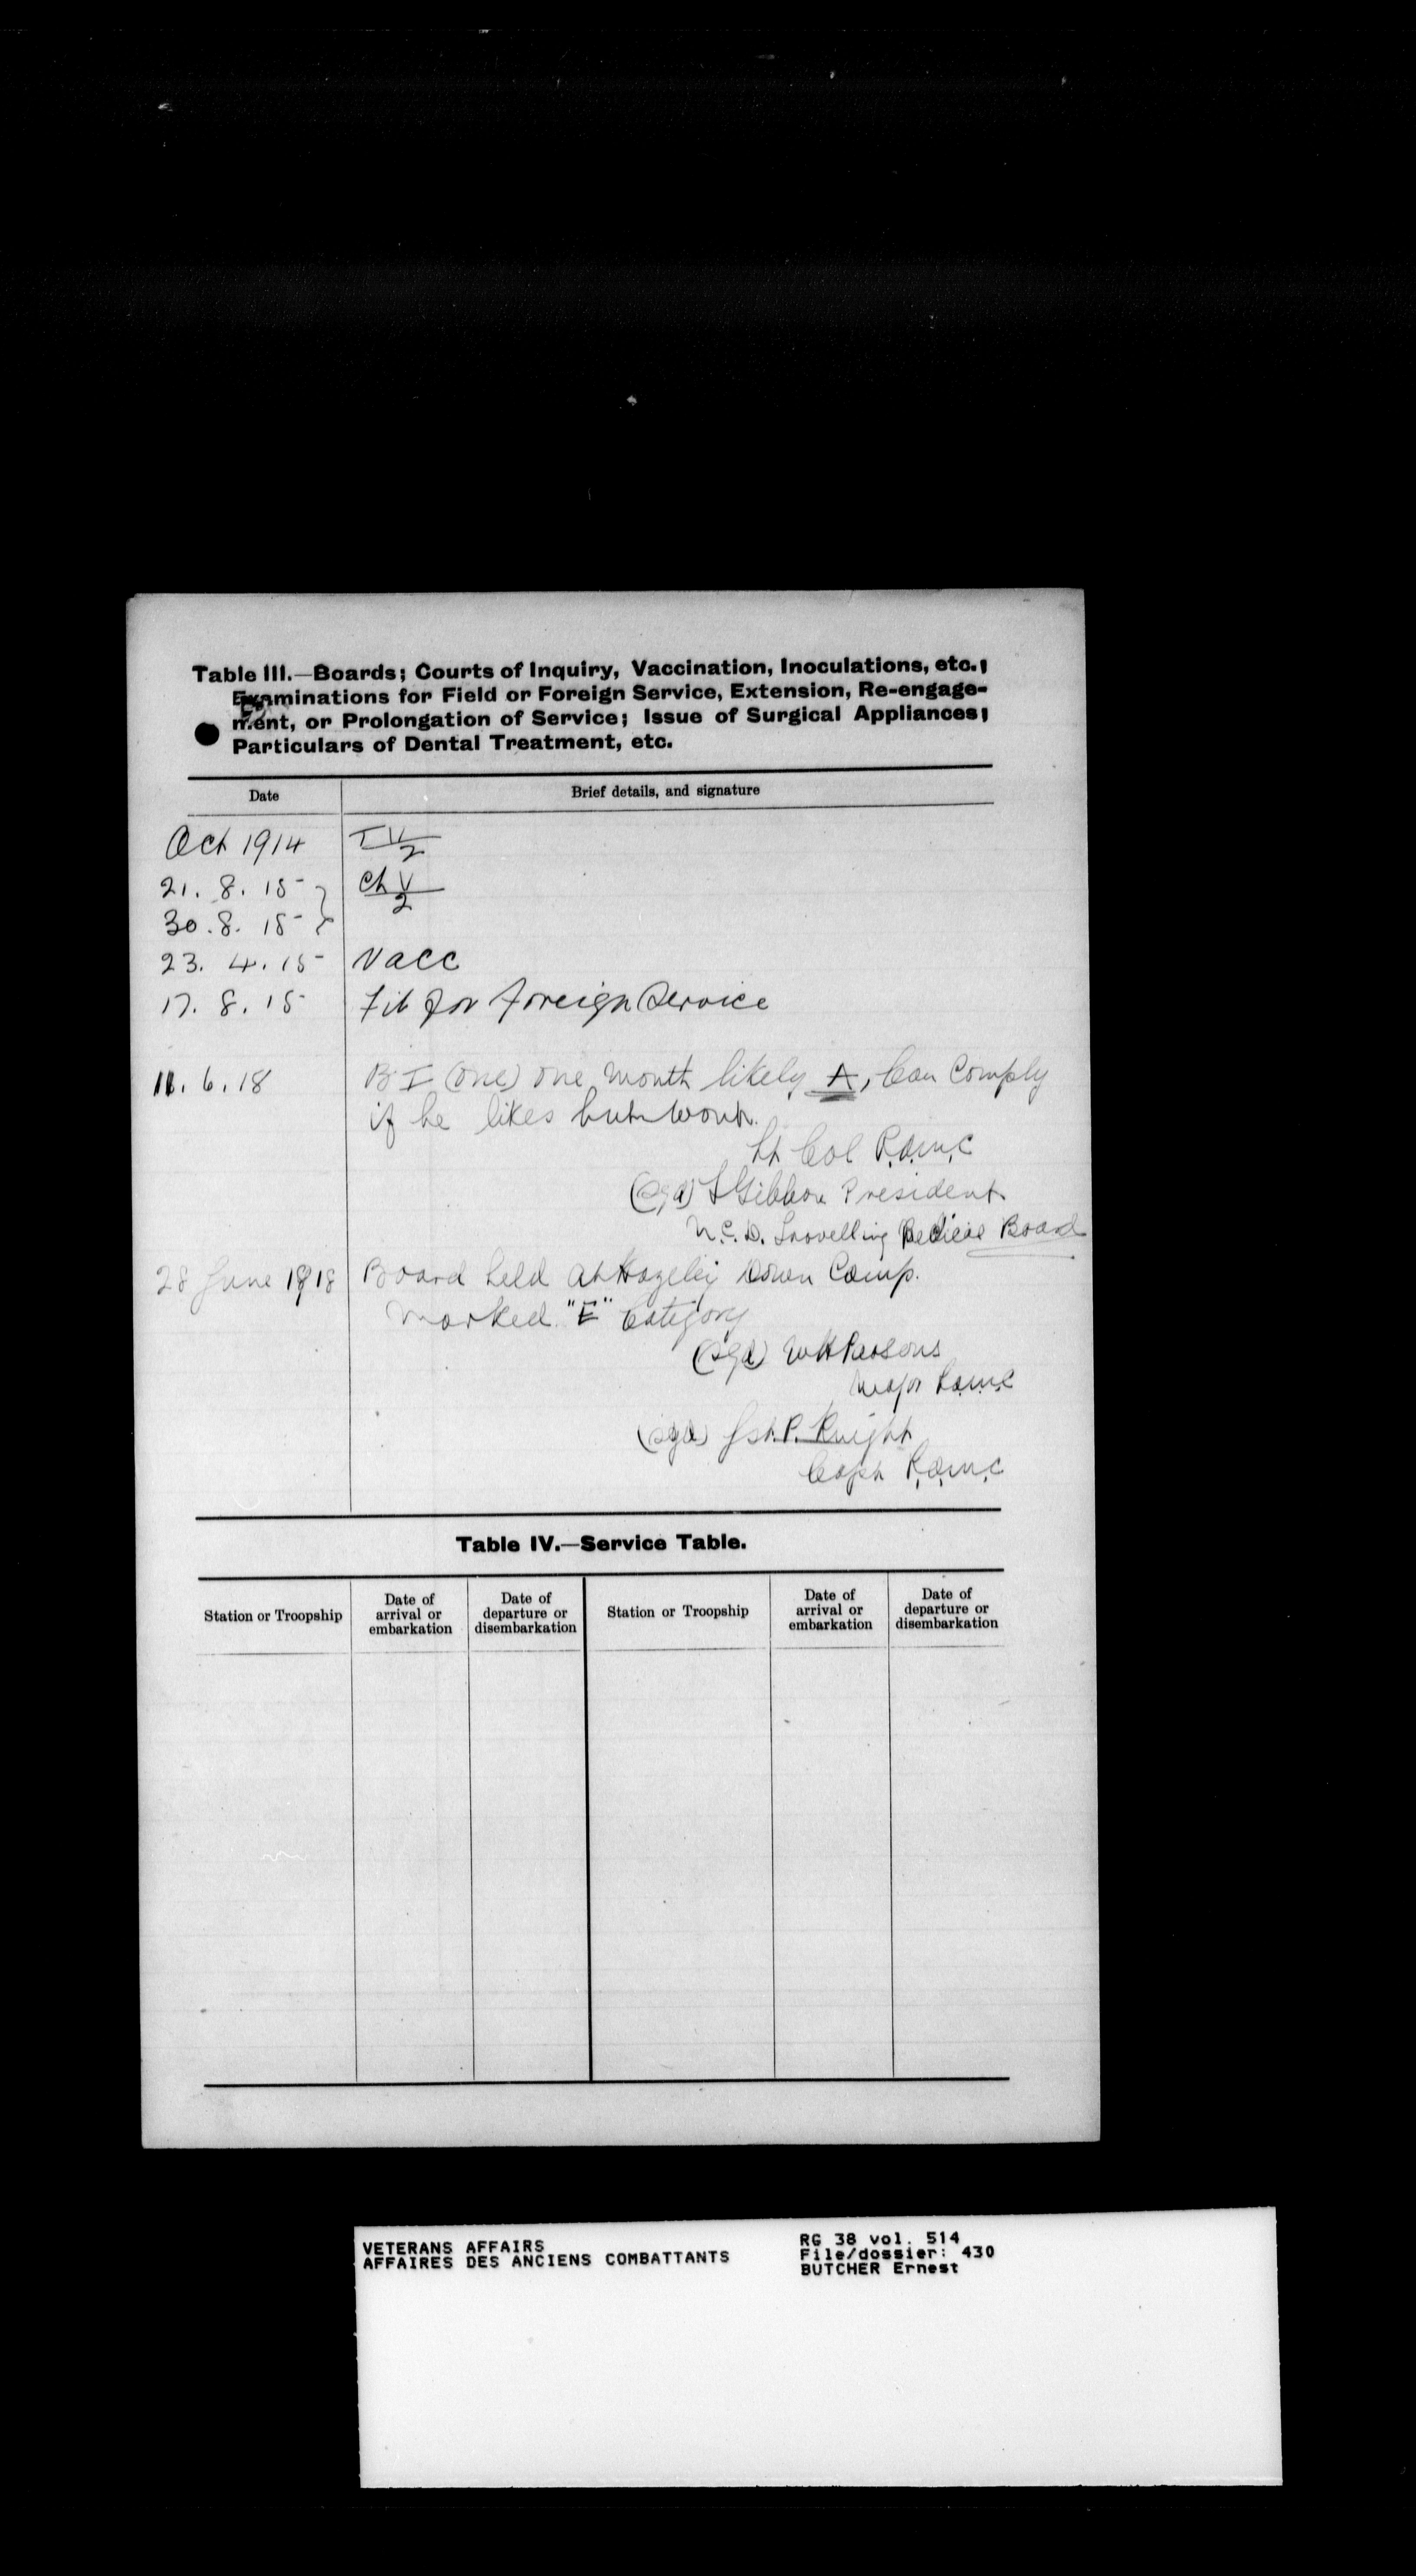 Table III.—Boards; Courts of Inquiry, Vaccination, Inoculations, etc.;
Examinations for Field or Foreign Service, Extension, Re-engage-
ment, or Prolongation of Service; Issue of Surgical Appliances;
Particulars of Dental Treatment, etc.
Date
Brief details, and signature
Oct 1914 T V/2
21. 8. 15 Ch V/2
30. 8. 15
23. 4. 15 Vacc
17. 8. 15 Fit for Foreign Service
11. 6. 18 B I (one) one month likely A, Can Comply
if he likes but wont.
Lt Col R.A.M.C
(sgd) Gibbon President
N.C.D. Travelling Medical Board
28 June 1918 Board held at Hazeley Down Camp.
Marked "E" Category
(sgd) W H Parsons
Major R.A.M.C
(sgd) P. Knight
Capt R.A.M.C
Table IV.—Service Table.
Station or Troopship
Date of
arrival or
embarkation
Date of
departure or
disembarkation
Station or Troopship
Date of
arrival or
embarkation
Date of
departure or
disembarkation
VETERANS AFFAIRS
AFFAIRES DES ANCIENS COMBATTANTS
RG 38 vol. 514
File/dossier: 430
BUTCHER Ernest